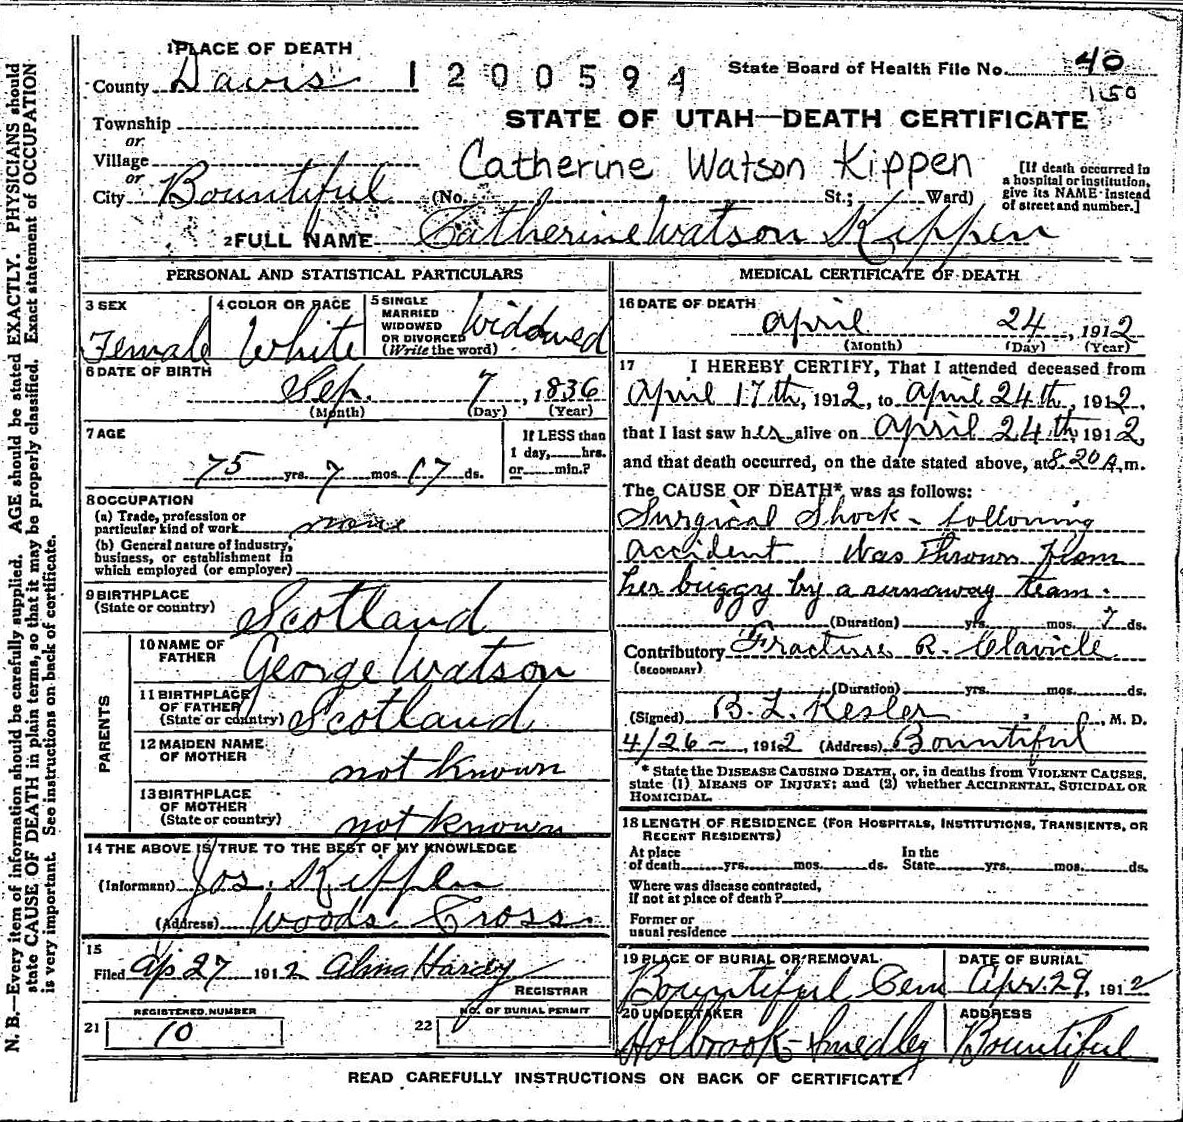 N. B.—Every item of information should be carefully supplied. AGE should be stated EXACTLY. PHYSICIANS should
state CAUSE OF DEATH in plain terms, so that it may be properly classified. Exact statement of OCCUPATION
is very important. See instructions on back of certificate.
1 PLACE OF DEATH
County Davis
1200594
State Board of Health File No. 40
150
Township
or
Village
or
City Bountiful
STATE OF UTAH—DEATH CERTIFICATE
Catherine Watson Kippen
(No. St.; Ward)
[If death occurred in
a hospital or institution,
give its NAME instead
of street and number.]
2 FULL NAME Catherine Watson Kippen
PERSONAL AND STATISTICAL PARTICULARS
3 SEX
Female
4 COLOR OR RACE
White
5 SINGLE
MARRIED
WIDOWED
OR DIVORCED
(Write the word)
Widowed
6 DATE OF BIRTH
Sep. 7, 1836
(Month) (Day) (Year)
7 AGE
75 yrs. 7 mos. 17 ds.
If LESS than
1 day, hrs.
or min.?
8 OCCUPATION
(a) Trade, profession or
particular kind of work none
(b) General nature of industry,
business, or establishment in
which employed (or employer)
9 BIRTHPLACE
(State or country) Scotland
PARENTS
10 NAME OF
FATHER George Watson
11 BIRTHPLACE
OF FATHER
(State or country) Scotland
12 MAIDEN NAME
OF MOTHER not known
13 BIRTHPLACE
OF MOTHER
(State or country) not known
14 THE ABOVE IS TRUE TO THE BEST OF MY KNOWLEDGE
(Informant) Jos. Kippen
(Address) Woods Cross
15
Filed Ap 27 1912 Alma Hardy
REGISTRAR
REGISTERED NUMBER
21 10
NO. OF BURIAL PERMIT
22
MEDICAL CERTIFICATE OF DEATH
16 DATE OF DEATH
April 24, 1912
(Month) (Day) (Year)
17 I HEREBY CERTIFY, That I attended deceased from
April 17th, 1912, to April 24th, 1912,
that I last saw her alive on April 24th, 1912,
and that death occurred, on the date stated above, at 8.20 A.m.
The CAUSE OF DEATH* was as follows:
Surgical Shock - following
accident Was Thrown from
her buggy by a runaway team.
(Duration) yrs. mos. 7 ds.
Contributory Fracture R. Clavicle
(SECONDARY)
(Duration) yrs. mos. ds.
(Signed) B. L. Kesler, M. D.
4/26 -, 1912 (Address) Bountiful
* State the DISEASE CAUSING DEATH, or, in deaths from VIOLENT CAUSES,
state (1) MEANS OF INJURY; and (2) whether ACCIDENTAL, SUICIDAL OR
HOMICIDAL.
18 LENGTH OF RESIDENCE (FOR HOSPITALS, INSTITUTIONS, TRANSIENTS, OR
RECENT RESIDENTS)
At place In the
of death yrs. mos. ds. State yrs. mos. ds.
Where was disease contracted,
if not at place of death?
Former or
usual residence
19 PLACE OF BURIAL OR REMOVAL
Bountiful Cem
DATE OF BURIAL
Apr. 29, 1912
20 UNDERTAKER
Holbrook-Smedley
ADDRESS
Bountiful
READ CAREFULLY INSTRUCTIONS ON BACK OF CERTIFICATE